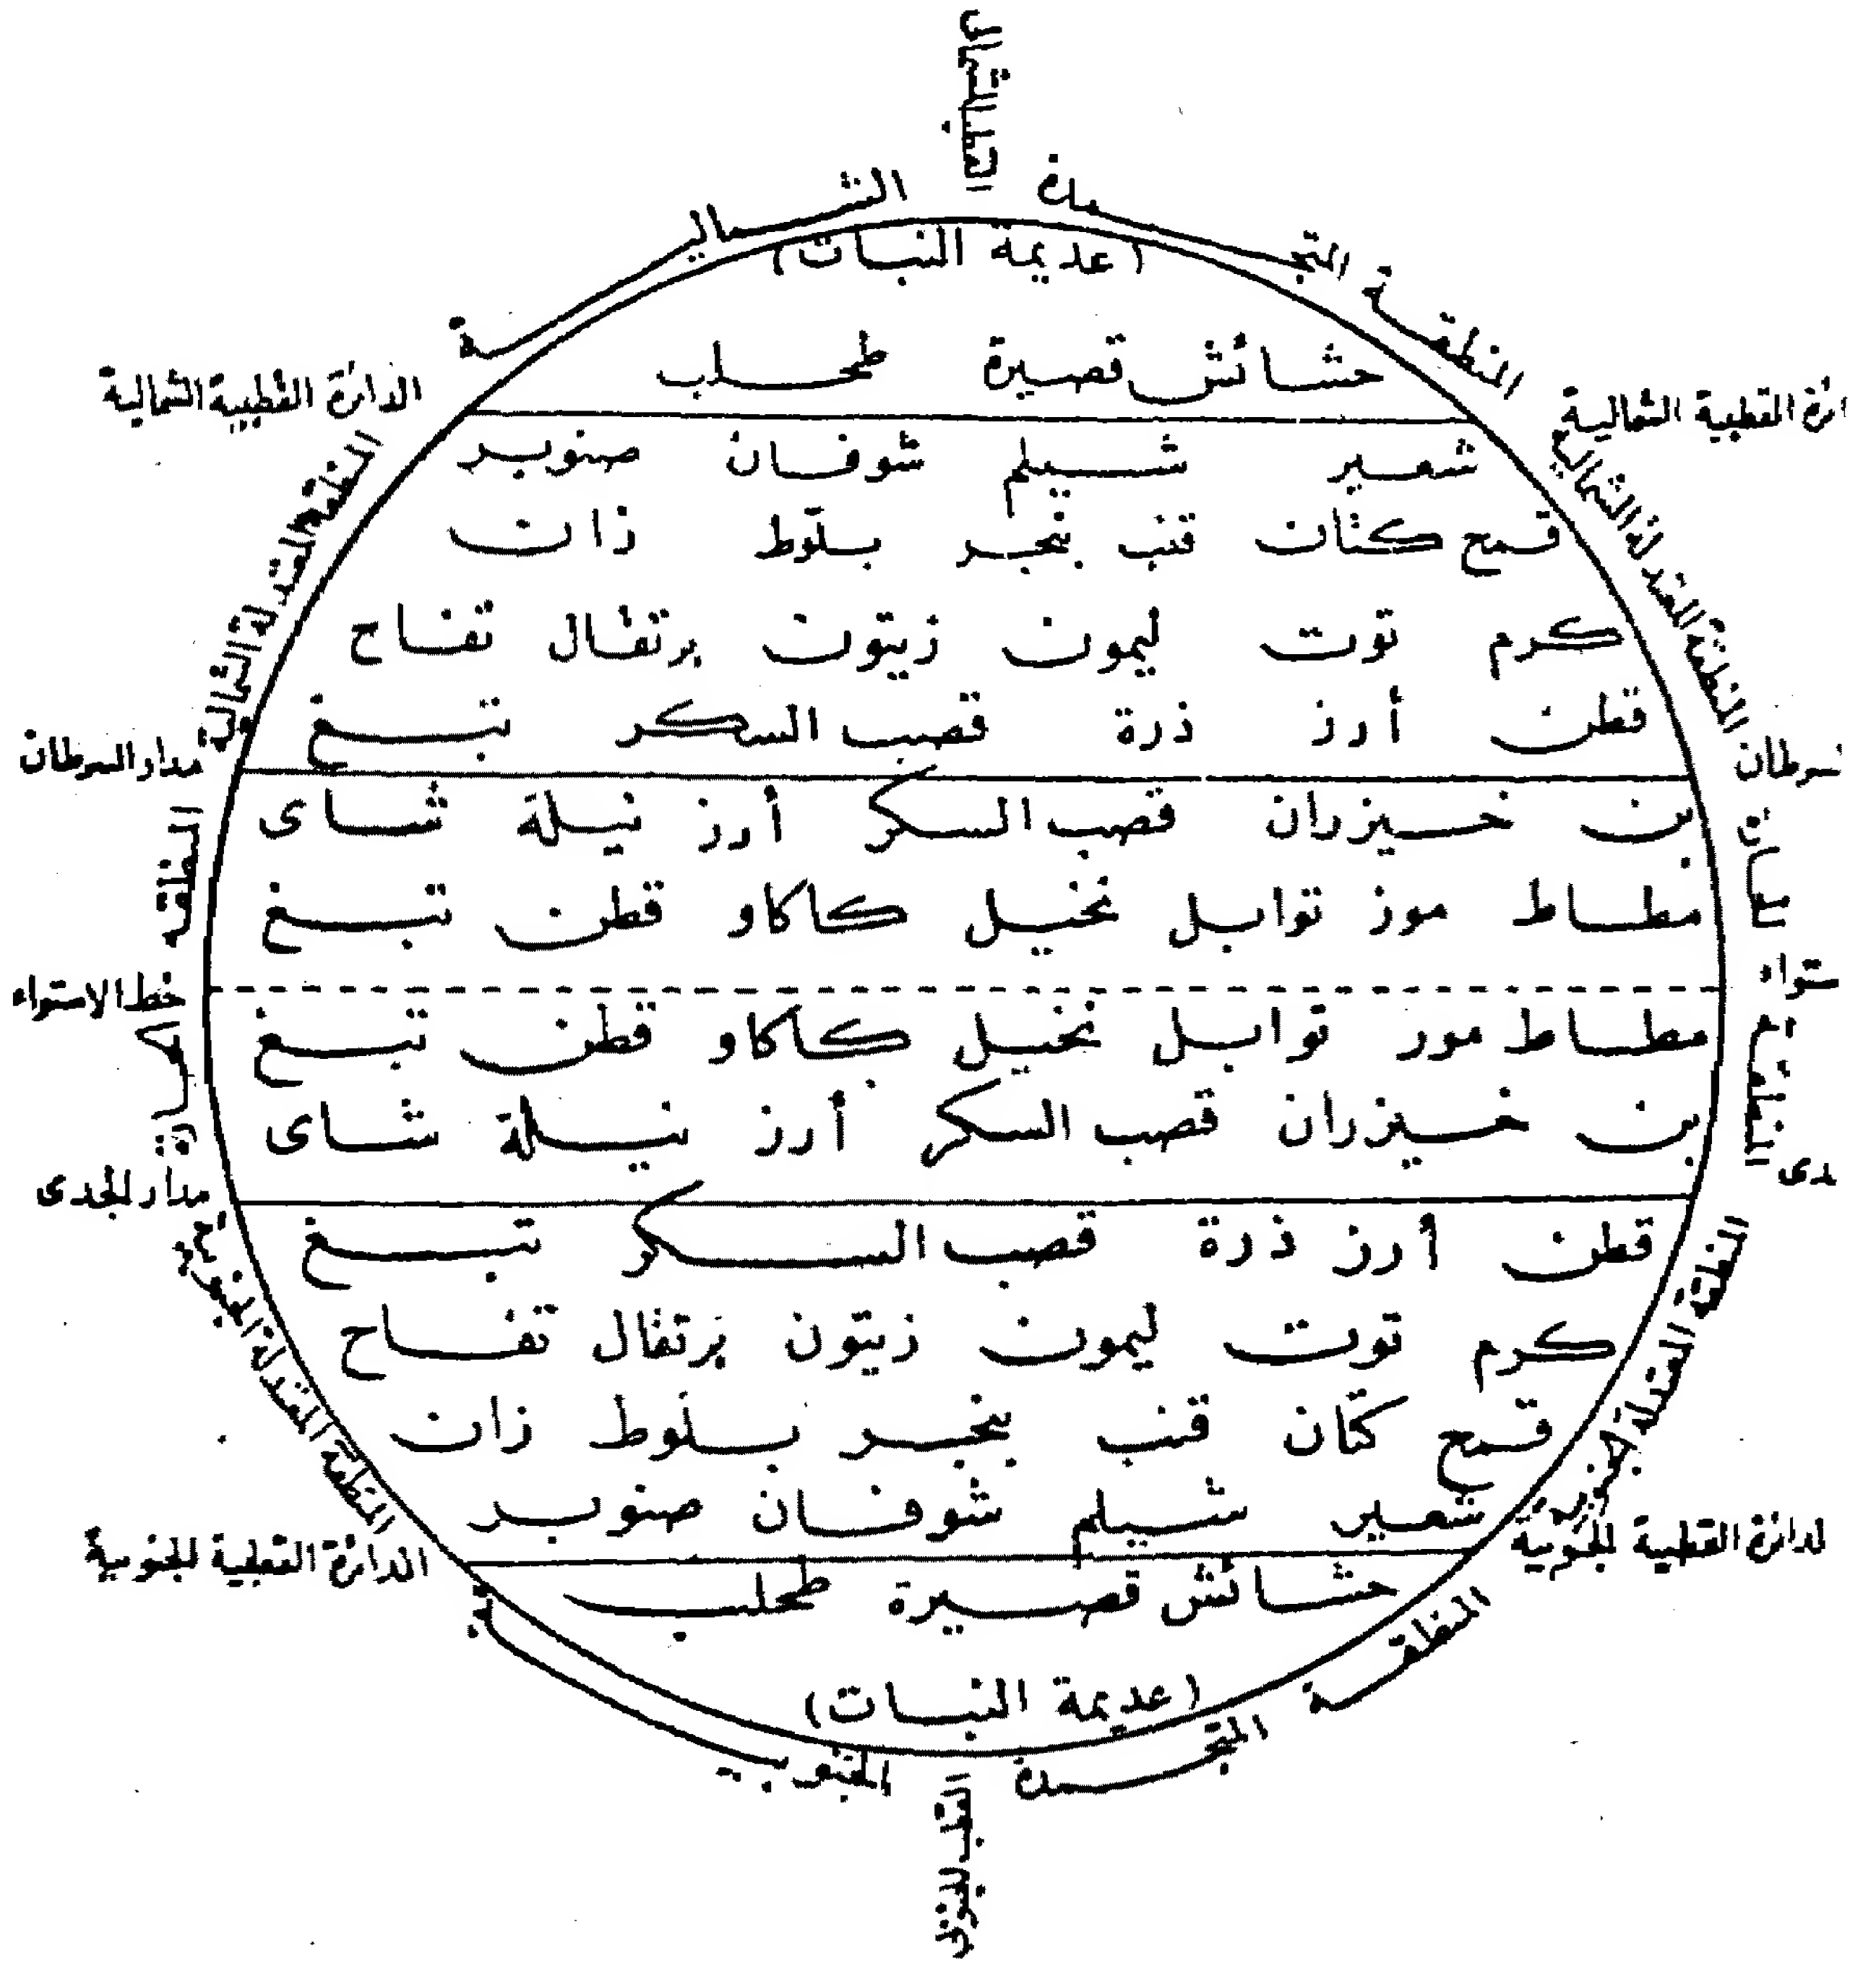 القطب الشمالي
المنطقة المتجمدة الشمالية
(عديمة النبات)
حشائش قصيرة طحلب
ائرة القطبية الشمالية
الدائرة القطبية الشمالية
المنطقة المعتدلة الشمالية
المنطقة المعتدلة الشمالية
شعير شيلم شوفان صنوبر
قمح كتان قنب بنجر بلوط زان
كرم توت ليمون زيتون برتقال تفاح
قطن أرز ذرة قصب السكر تبغ
سرطان
مدار السرطان
بن خيزران قصب السكر أرز نيلة شاى
مطاط موز توابل نخيل كاكاو قطن تبغ
المنطقة
ستواء
خط الاستواء
مطاط مور توابل نخيل كاكاو قطن تبغ
بن خيزران قصب السكر أرز نيلة شاى
الحارة
دى
مدار الجدى
قطن أرز ذرة قصب السكر تبغ
كرم توت ليمون زيتون برتقال تفاح
قمح كتان قنب بنجر بلوط زان
شعير شيلم شوفان صنوبر
المنطقة المعتدلة الجنوبية
المنطقة المعتدلة الجنوبية
لدائرة القطبية الجنوبية
الدائرة القطبية الجنوبية
حشائش قصيرة طحلب
(عديمة النبات)
المنطقة المتجمدة الجنوبية
القطب الجنوبى